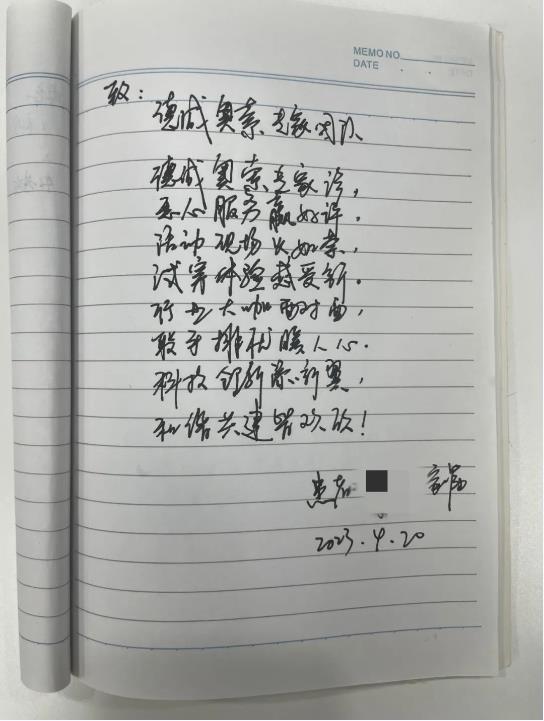 MEMO NO.
DATE
致：
德林奥索专家团队
德林奥索专家访，
贴心服务赢好评。
活动现场
试穿体验感受新。
行业大咖面对面，
排忧暖人心。
科技创新添新翼，
和谐共建皆欢欣！
患者 家属
2023.4.20